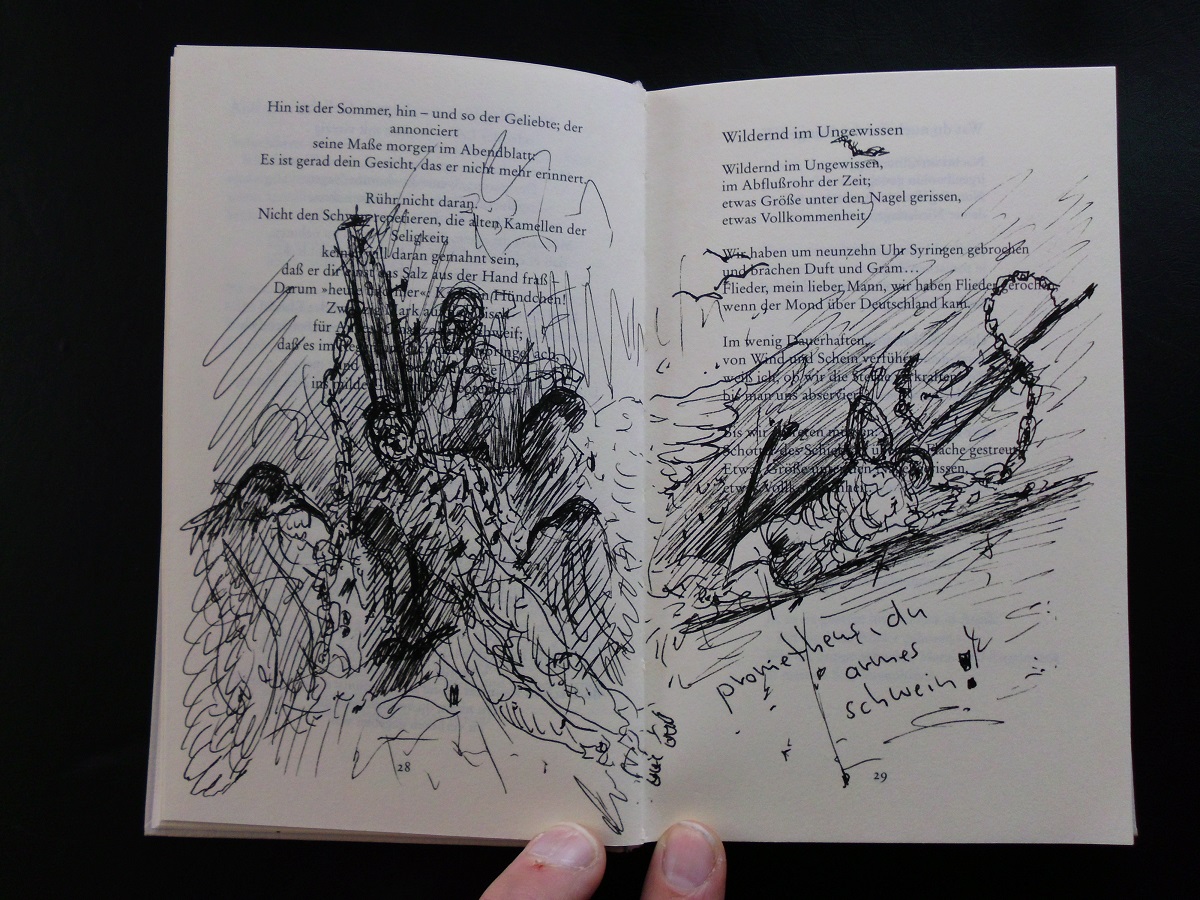 Hin ist der Sommer, hin – und so der Geliebte; der
annonciert
seine Maße morgen im Abendblatt:
Es ist gerad dein Gesicht, das er nicht mehr erinnert.
Rühr nicht daran.
Nicht den Schwur repetieren, die alten Kamellen der
Seligkeit;
daran gemahnt sein,
daß er dir einst das Salz aus der Hand fraß –
Darum »heute und hier«: Hündchen!
für
daß es im
und
ins
28
Wildernd im Ungewissen
Wildernd im Ungewissen,
im Abflußrohr der Zeit;
etwas Größe unter den Nagel gerissen,
etwas Vollkommenheit,
Wir haben um neunzehn Uhr Syringen gebrochen
und brachen Duft und Gram…
Flieder, mein lieber Mann, wir haben Flieder gerochen
wenn der Mond über Deutschland kam.
Im wenig Dauerhaften,
von Wind und Schein verführt –
weiß ich, ob wir die Stelle verkraften,
bis man uns abserviert.
Bis wir
Schotter des Schicksals über die Fläche gestreut
Etwas Größe unter den Nagel gerissen,
etwas Vollkommenheit.
prometheus, du
armes
schwein!
29